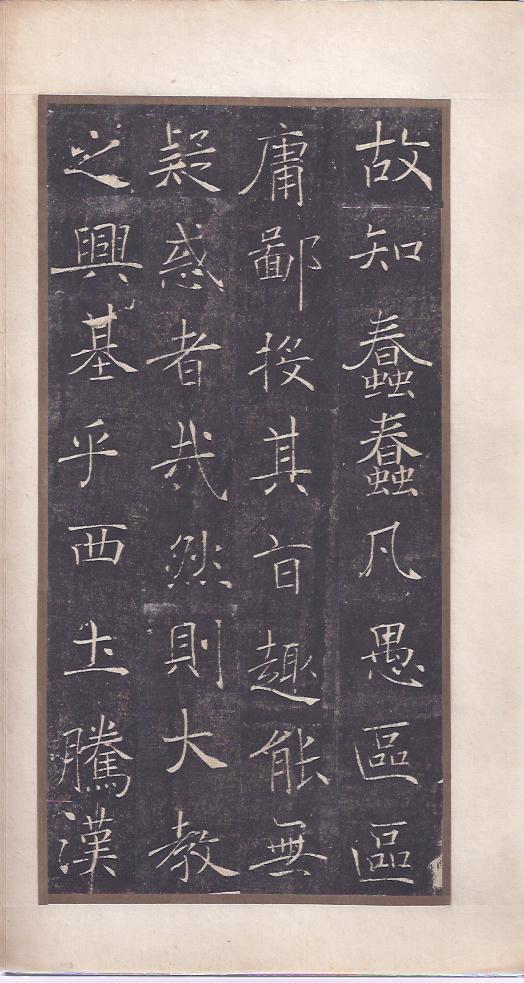 故知蠢蠢凡愚區區
庸鄙投其旨趣能無
疑惑者哉然則大教
之興基乎西土騰漢